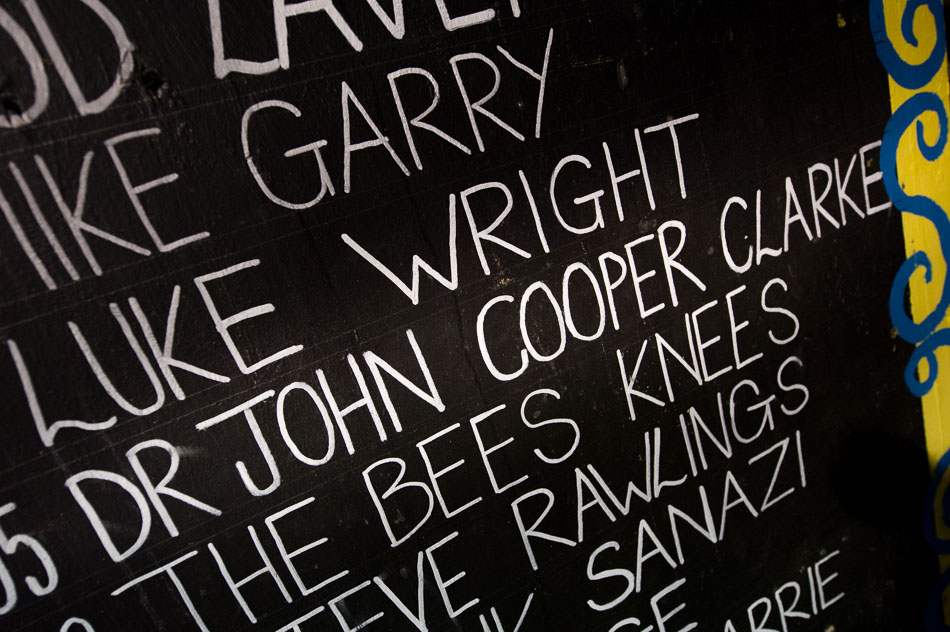 LAVE
IKE GARRY
LUKE WRIGHT
05 DR JOHN COOPER CLARKE
THE BEES KNEES
TEVE RAWLINGS
SANAZI
ARRIE